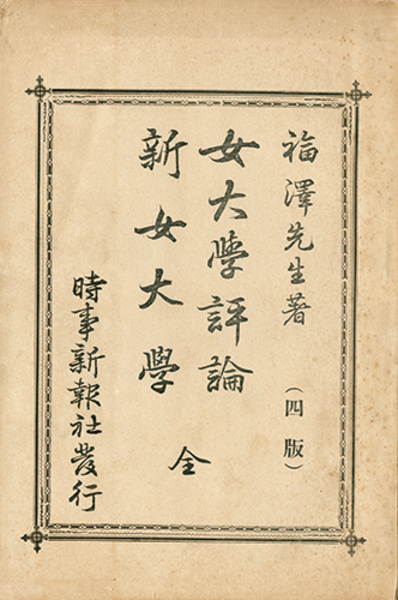 福澤先生著
(四版)
女大學評論
新女大學
全
時事新報社發行